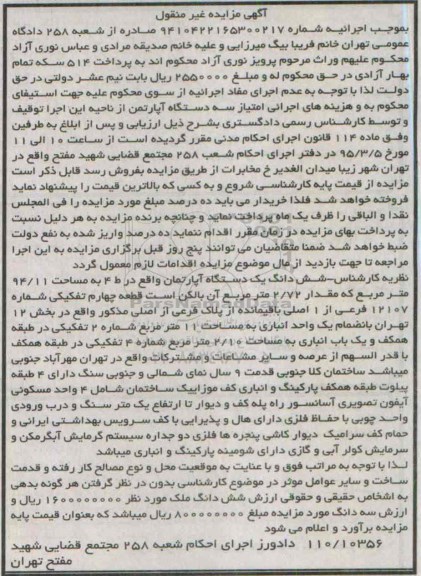 آگهی مزایده غیر منقول
بموجب اجرائیه شماره ۹۴۱۰۴۲۲۱۶۵۳۰۰۲۱۷ صادره از شعبه ۲۵۸ دادگاه
عمومی تهران خانم فریبا بیگ میرزایی و علیه خانم صدیقه مرادی و عباس نوری آزاد
محکوم علیهم وراث مرحوم پرویز نوری آزاد محکوم اند به پرداخت ۵۱۴ سکه تمام
بهار آزادی در حق محکوم له و مبلغ ۲۵۵۰۰۰۰ ریال بابت نیم عشر دولتی در حق
دولت لذا با توجه به عدم اجرای مفاد اجرائیه از سوی محکوم علیه جهت استیفای
محکوم به و هزینه های اجرائی امتیاز سه دستگاه آپارتمن از ناحیه این اجرا توقیف
و توسط کارشناس رسمی دادگستری بشرح ذیل ارزیابی و پس از ابلاغ به طرفین
وفق ماده ۱۱۴ قانون اجرای احکام مدنی مقرر گردیده است از ساعت ۱۰ الی ۱۱
مورخ ۹۵/۳/۵ در دفتر اجرای احکام شعب ۲۵۸ مجتمع قضایی شهید مفتح واقع در
تهران شهر زیبا میدان الغدیر خ مخابرات از طریق مزایده بفروش رسد قابل ذکر است
مزایده از قیمت پایه کارشناسی شروع و به کسی که بالاترین قیمت را پیشنهاد نماید
فروخته خواهد شد فلذا خریدار می باید ده درصد مبلغ مورد مزایده را فی المجلس
نقدا و الباقی را ظرف یک ماه پرداخت نماید و چنانچه برنده مزایده به هر دلیل نسبت
به پرداخت بهای مزایده در زمان مقرر اقدام ننماید ده درصد واریز شده به نفع دولت
ضبط خواهد شد ضمنا متقاضیان می توانند پنج روز قبل برگزاری مزایده به این اجرا
مراجعه تا جهت بازدید از مال موضوع مزایده اقدامات لازم معمول گردد
نظریه کارشناس-شش دانگ یک دستگاه آپارتمان واقع در ط ۴ به مساحت ۹۴/۱۱
متر مربع که مقدار ۲/۷۲ متر مربع آن بالکن است قطعه چهارم تفکیکی شماره
۱۲۱۰۷ فرعی از ۱ اصلی باقیمانده از پلاک فرعی از اصلی مذکور واقع در بخش ۱۲
تهران بانضمام یک واحد انباری به مساحت ۱۱ متر مربع شماره ۲ تفکیکی در طبقه
همکف و یک باب انباری به مساحت ۲/۱۰ متر مربع شماره ۴ تفکیکی در طبقه همکف
با قدر السهم از عرصه و سایر مشاعات و مشترکات واقع در تهران مهرآباد جنوبی
میباشد ساختمان کلا جنوبی قدمت ۹ سال نمای شمالی و جنوبی سنگ دارای ۴ طبقه
پیلوت طبقه همکف پارکینگ و انباری کف موزاییک ساختمان شامل ۴ واحد مسکونی
آیفون تصویری آسانسور راه پله کف و دیوار تا ارتفاع یک متر سنگ و درب ورودی
واحد چوبی با حفاظ فلزی دارای هال و پذیرایی با کف سرویس بهداشتی ایرانی و
حمام کف سرامیک دیوار کاشی پنجره ها فلزی دو جداره سیستم گرمایش آبگرمکن و
سرمایش کولر آبی و گازی دارای شومینه پارکینگ و انباری میباشد
لذا با توجه به مراتب فوق و با عنایت به موقعیت محل و نوع مصالح کار رفته و قدمت
ساخت و سایر عوامل موثر در موضوع کارشناسی بدون در نظر گرفتن هر گونه بدهی
به اشخاص حقیقی و حقوقی ارزش شش دانگ ملک مورد نظر ۱۶۰۰۰۰۰۰۰۰ ریال و
ارزش سه دانگ مورد مزایده مبلغ ۸۰۰۰۰۰۰۰۰ ریال میباشد که بعنوان قیمت پایه
مزایده برآورد و اعلام می شود
۱۱۰/۱۰۳۵۶ دادورز اجرای احکام شعبه ۲۵۸ مجتمع قضایی شهید
مفتح تهران